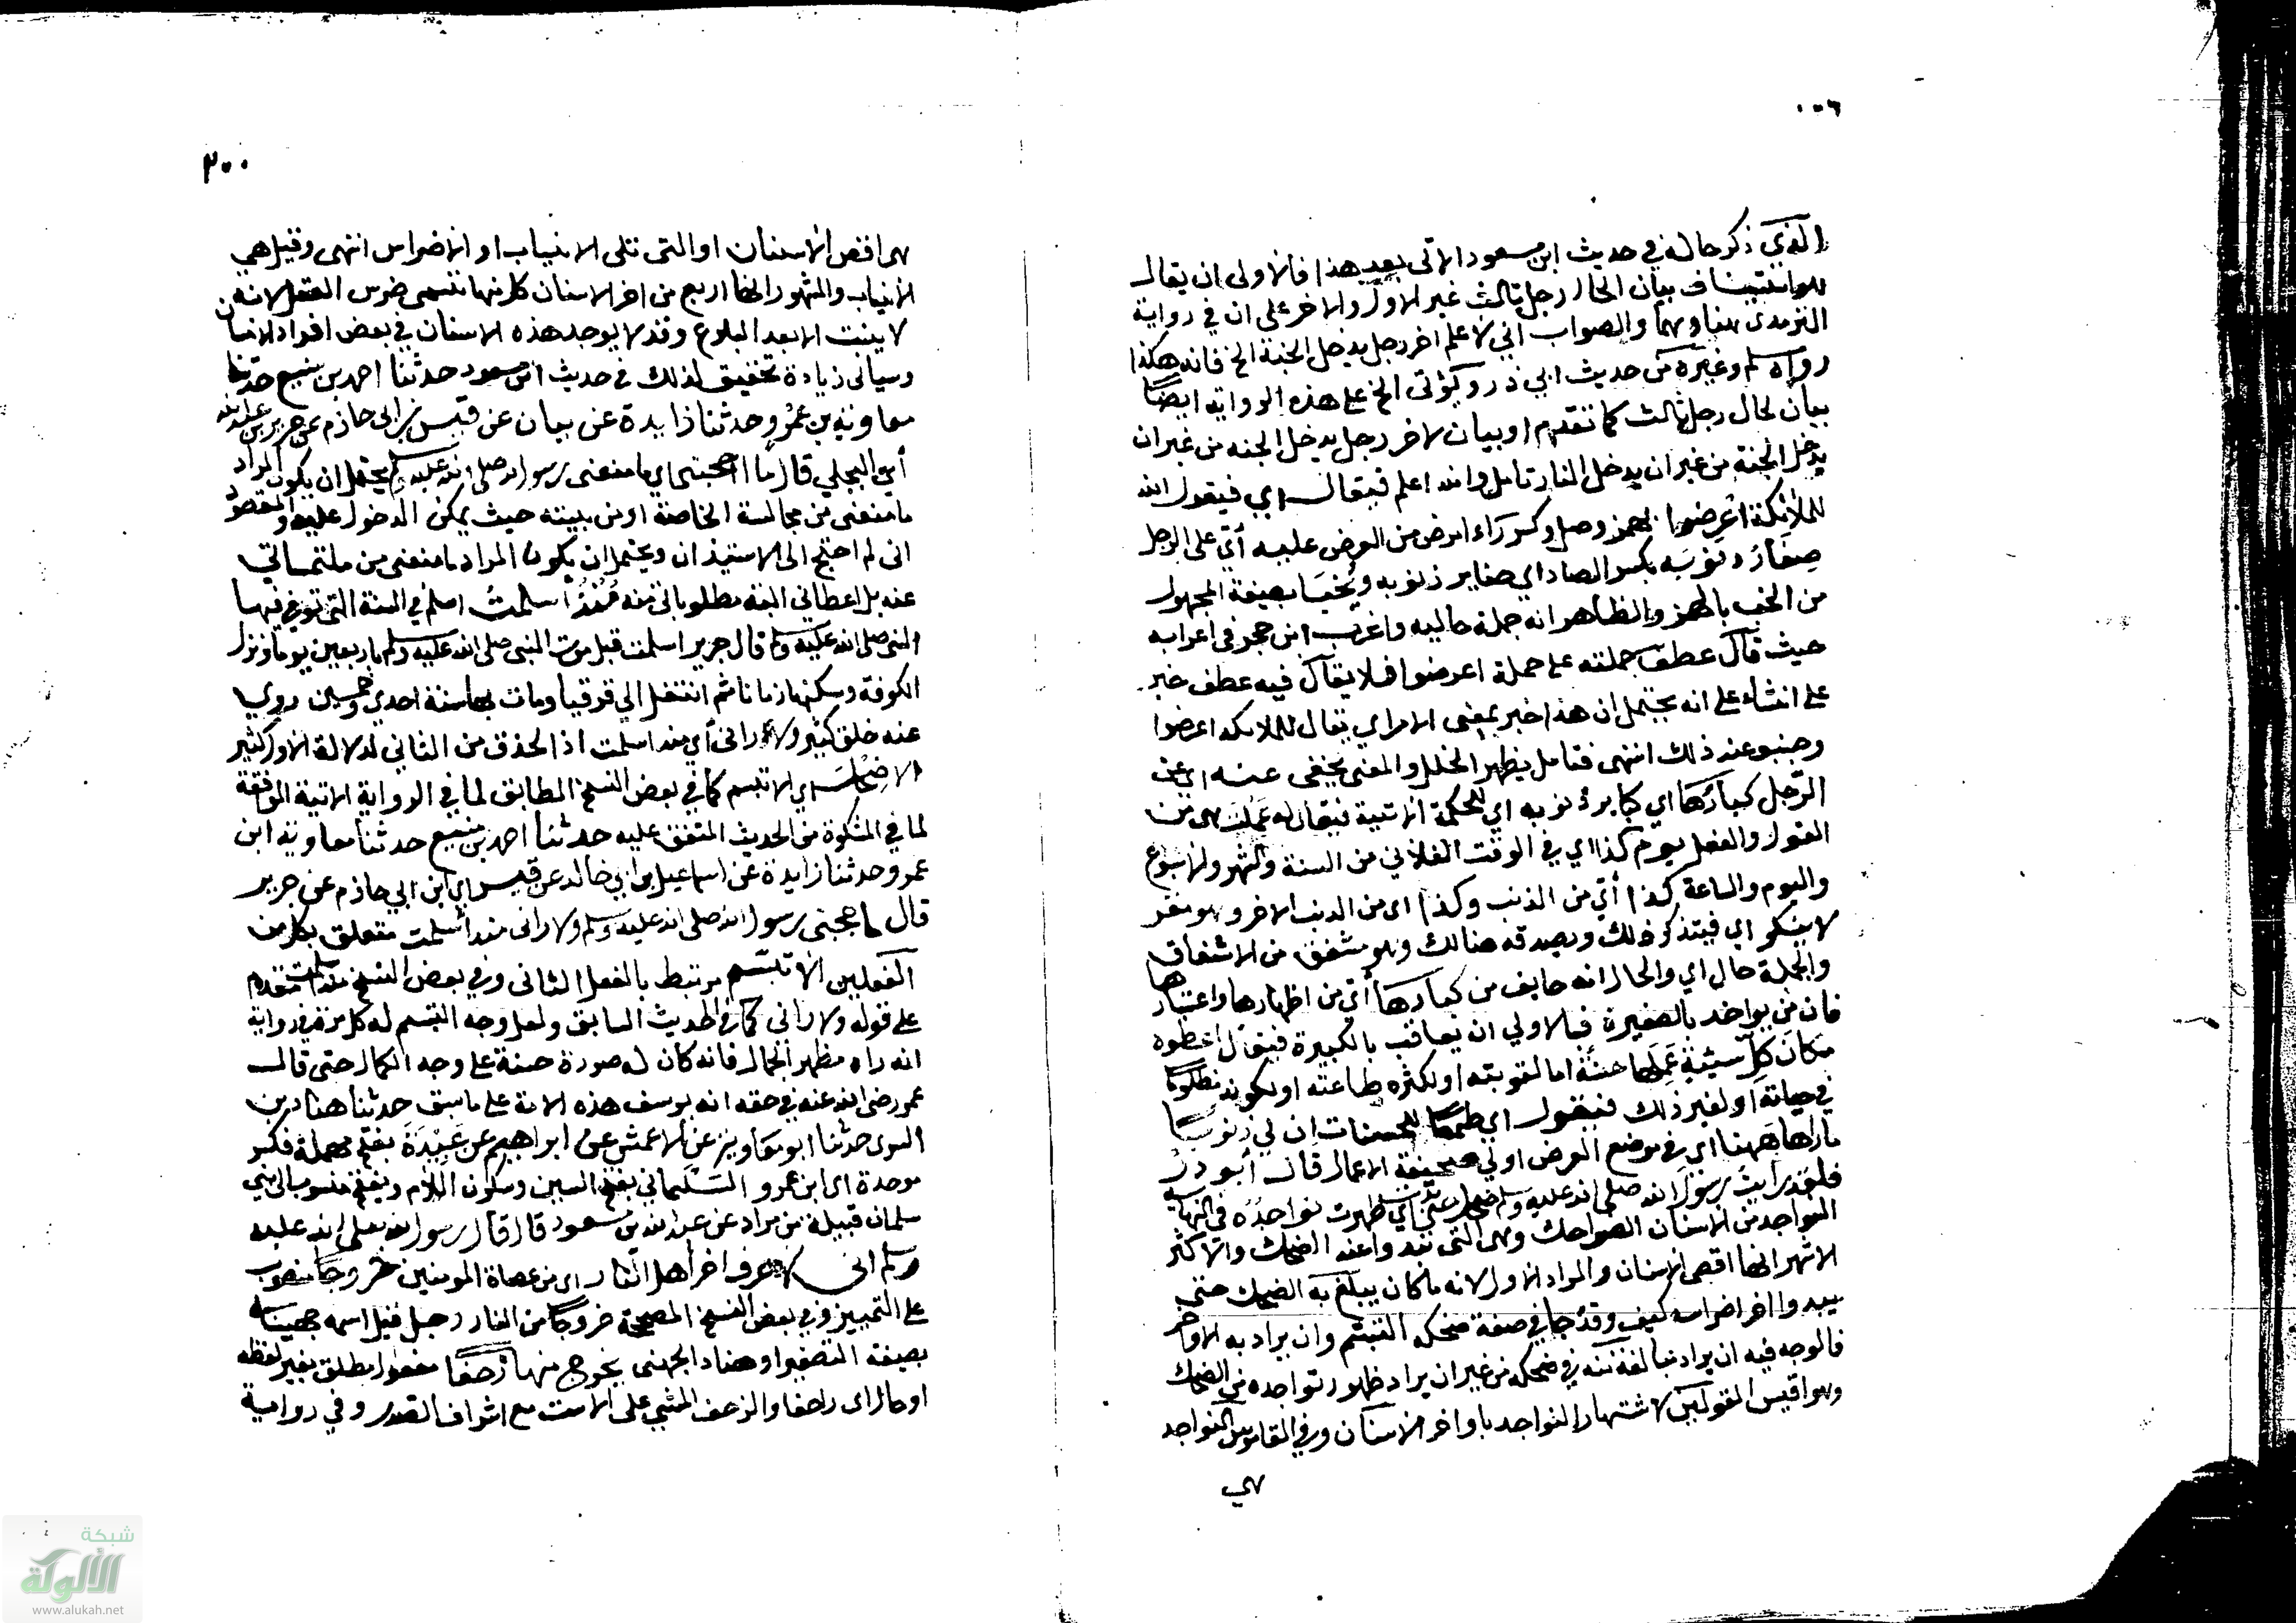 ١٠٦
الذي ذكر حاله في حديث ابن مسعود الاتى بعد هذا فالاولى ان يقال
بيان الحال رجل ثالث غير الاول والاخر على ان في رواية
الترمذى هنا وهما والصواب انى لاعلم اخر رجل يدخل الجنة الخ فانه هكذا
رواه مسلم وغيره من حديث ابي ذر ويؤتى الخ على هذه الرواية ايضا
بيان لحال رجل ثالث كما تقدم او بيان لاخر رجل يدخل الجنه من غير ان
يدخل الجنة من غير ان يدخل النار تامل والله اعلم فيقال اي فيقول الله
للملائكة اعرضوا بهمز وصل وكسر راء امر من العرض عليه أي على الرجل
صغار ذنوبه بكسر الصاد اي صغاير ذنوبه ويخبأ بصيغة المجهول
من الخبء بالهمز والظاهر انه جملة حاليه واغرب ابن حجر في اعرابه
حيث قال عطف جملته على جملة اعرضوا فلا يقال فيه عطف خبر
على انشاء على انه يحتمل ان هذا خبر بمعنى الامر اي يقال للملائكه اعرضوا
وخبئو عنه ذلك انتهى فتامل يظهر الخلل والمعنى يخفى عنه اي عن
الرجل كبارها اي كباير ذنوبه اي للحكمة الاتية فيقال له عملت من
القول والفعل يوم كذا اي في الوقت الفلاني من السنة والشهر والاسبوع
واليوم والساعة كذا أي من الذنب وكذا اى من الذنب الاخر وهو مقر
لا ينكر اي فيتذكر ذلك ويصدقه هنالك وهو مشفق من الاشفاق
والجملة حال اي والحال انه خايف من كبارها أي من اظهارها واعتبارها
فان من يواخذ بالصغيرة فبالاولي ان يعاقب بالكبيرة فيقال اعطوه
مكان كل سيئة عملها حسنة اما لتوبته او لكثرة طاعته او لكونه مظلوما
في حياته او لغير ذلك فيقول اي طمعا للحسنات ان لي ذنوبا
ما راها ههنا اي في موضع العرض او في صحيفة الاعمال قال أبو ذر
فلقد رايت رسول الله صلى الله عليه وسلم ضحك حتى بدت اي ظهرت نواجذه في النهاية
النواجذ من الاسنان الضواحك وهي التى تبدوا عند الضحك والاكثر
الاشهر انها اقصى الاسنان والمراد الاول لانه ما كان يبلغ به الضحك حتى
يبدوا اخر اضراسه كيف وقد جا في صفة ضحكه التبسم وان يراد به الاواخر
فالوجه فيه ان يراد مبالغة مثله في ضحكه من غير ان يراد ظهور نواجذه في الضحك
وهو اقيس القولين لاشتهار النواجذ باواخر الاسنان وفي القاموس النواجذ
هي
٢٠٠
هي اقصى الاسنان او التى تلى الانياب او الاضراس انتهى وقيل هي
الانياب والمشهور انها اربع من اخر الاسنان كل منها تسمى ضرس العقل لانه
لا ينبت الا بعد البلوغ وقد لا يوجد هذه الاسنان في بعض افراد الانسان
وسياتى زيادة تحقيق لذلك في حديث ابن مسعود حدثنا احمد بن منيع حدثنا
معاوية بن عمرو حدثنا زايدة عن بيان عن قيس بن ابى حازم عن جرير بن عبد الله
أي البجلي قال ما احجبنى اي ما منعنى رسول الله صلى الله عليه وسلم يحتمل ان يكون المراد
ما منعنى من مجالسة الخاصة او من بيته حيث يمكن الدخول عليه والمقصود
انى لم احتج الى الاستيذان ويحتمل ان يكون المراد ما منعنى من ملتمساتي
عنه بل اعطاني البتة مطلوباتى منه منذ أسلمت اسلم في السنة التى توفي فيها
النبي صلى الله عليه وسلم قال جرير اسلمت قبل موت النبي صلى الله عليه وسلم باربعين يوما ونزل
الكوفة وسكنها زمانا ثم انتقل الي قرقيا ومات بها سنة احدى وخمسين روي
عنه خلق كثير ولا رانى أي منذ اسلمت اذ الحذف من الثانى لدلالة الاول كثير
الا ضحك اي الا تبسم كما في بعض النسخ المطابق لما في الرواية الاتية الموافقة
لما في المشكوة من الحديث المتفق عليه حدثنا احمد بن منيع حدثنا معاوية ابن
عمرو حدثنا زايدة عن اسماعيل بن ابي خالد عن قيس اي ابن ابي حازم عن جرير
قال ما حجبنى رسول الله صلى الله عليه وسلم ولا رانى منذ أسلمت متعلق بكل من
الفعلين الا تبسم مرتبط بالفعل الثانى وفي بعض النسخ منذ اسلمت متقدم
على قوله ولا رانى كما في الحديث السابق ولعل وجه التبسم له كل مرة في رواية
انه راه مظهر الجمال فانه كان له صورة حسنة على وجه الكمال حتى قال
عمر رضى الله عنه في حقه انه يوسف هذه الامة على ما سبق حدثنا هناد بن
السرى حدثنا ابو معاوية عن الاعمش عن ابراهيم عن عبيدة بفتح مهملة فكسر
موحدة اى ابن عمرو السلماني بفتح السين وسكون اللام وبفتح منسوب الى بنى
سلمان قبيلة من مراد عن عبد الله بن مسعود قال قال رسول الله صلى الله عليه
وسلم انى لاعرف اخر أهل النار اى من عصاة المومنين خروجا منصوب
على التمييز وفي بعض النسخ المصححة خروجا من النار رجل قيل اسمه جهينة
بصيغة التصغير او هناد الجهنى يخرج منها زحفا مفعول مطلق بغير لفظه
او حال اى زاحفا والزحف المشي على الاست مع اشراف الصدر وفي رواية
شبكة
الألوكة
www.alukah.net